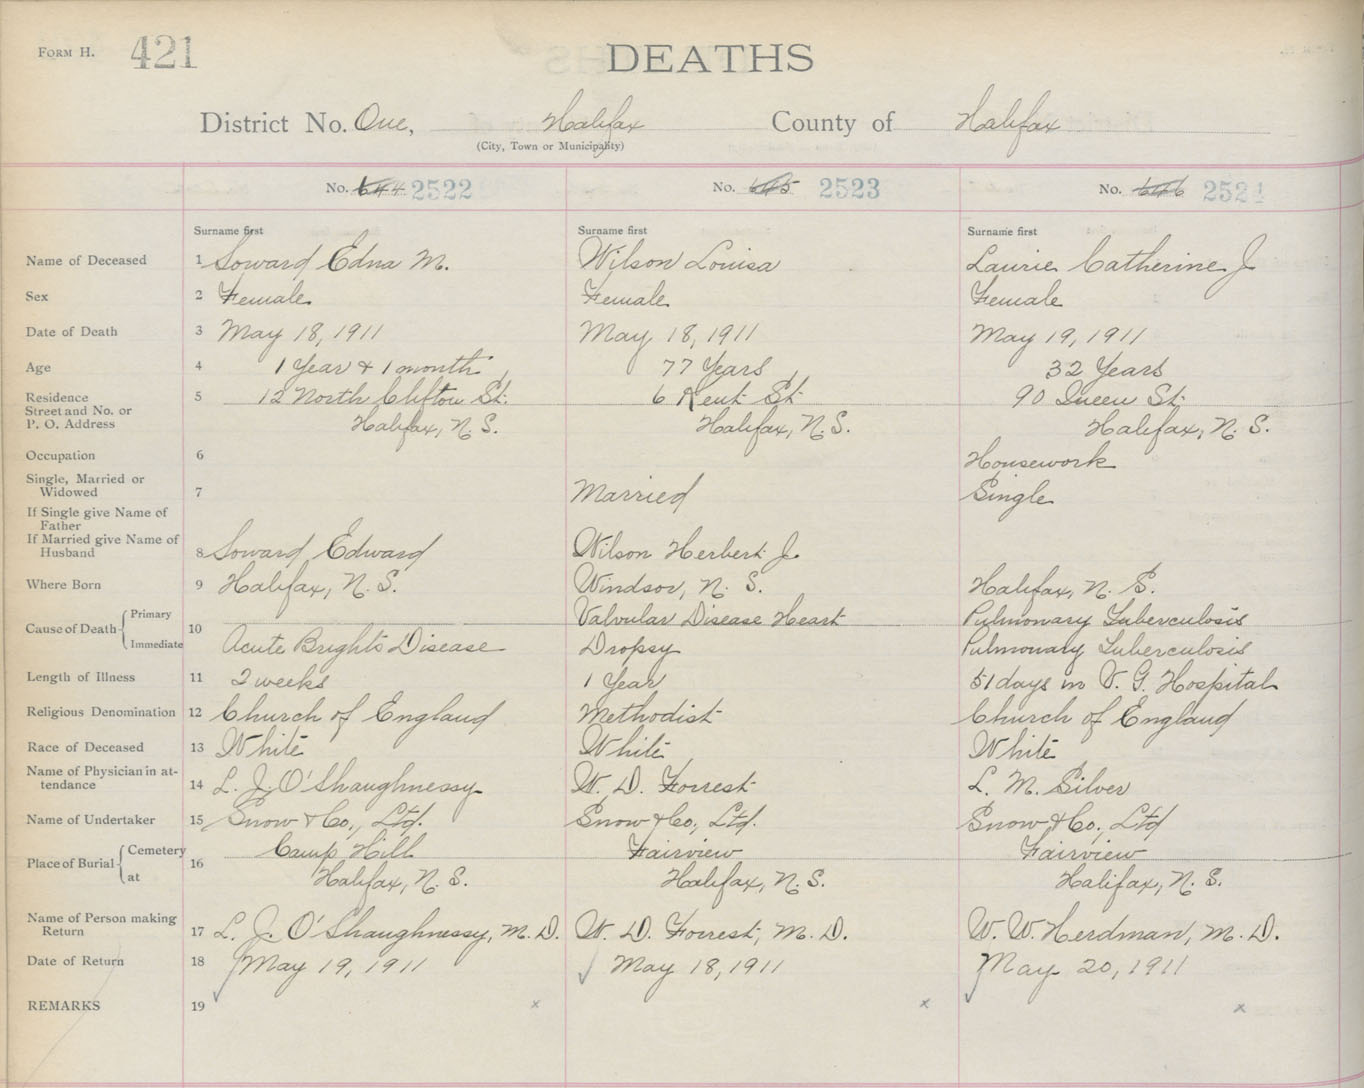 FORM H. 421 DEATHS
District No. One, Halifax County of Halifax
(City, Town or Municipality)
No. 644 2522 No. 645 2523 No. 646 2524
Surname first Surname first Surname first
Name of Deceased 1 Soward Edna M. Wilson Louisa Laurie Catherine J
Sex 2 Female Female Female
Date of Death 3 May 18, 1911 May 18, 1911 May 19, 1911
Age 4 1 Year & 1 month 77 Years 32 Years
Residence 5 12 North Clifton St. 6 Kent St. 90 Queen St.
Street and No. or
P. O. Address Halifax, N. S. Halifax, N. S. Halifax, N. S.
Occupation 6 Housework
Single, Married or
Widowed 7 Married Single
If Single give Name of
Father
If Married give Name of
Husband 8 Soward Edward Wilson Herbert J
Where Born 9 Halifax, N. S. Windsor, N. S. Halifax, N. S.
Cause of Death Primary 10 Valvular Disease Heart Pulmonary Tuberculosis
Immediate Acute Brights Disease Dropsy Pulmonary Tuberculosis
Length of Illness 11 2 weeks 1 Year 51 days in V. G. Hospital
Religious Denomination 12 Church of England Methodist Church of England
Race of Deceased 13 White White White
Name of Physician in at-
tendance 14 L. J. O'Shaughnessy W. D. Forrest L. M. Silver
Name of Undertaker 15 Snow & Co., Ltd. Snow & Co., Ltd. Snow & Co., Ltd
Place of Burial Cemetery 16 Camp Hill Fairview Fairview
at Halifax, N. S. Halifax, N. S. Halifax, N. S.
Name of Person making
Return 17 L. J. O'Shaughnessy, M. D. W. D. Forrest, M. D. W. W. Herdman, M. D.
Date of Return 18 May 19, 1911 May 18, 1911 May 20, 1911
REMARKS 19 x x x